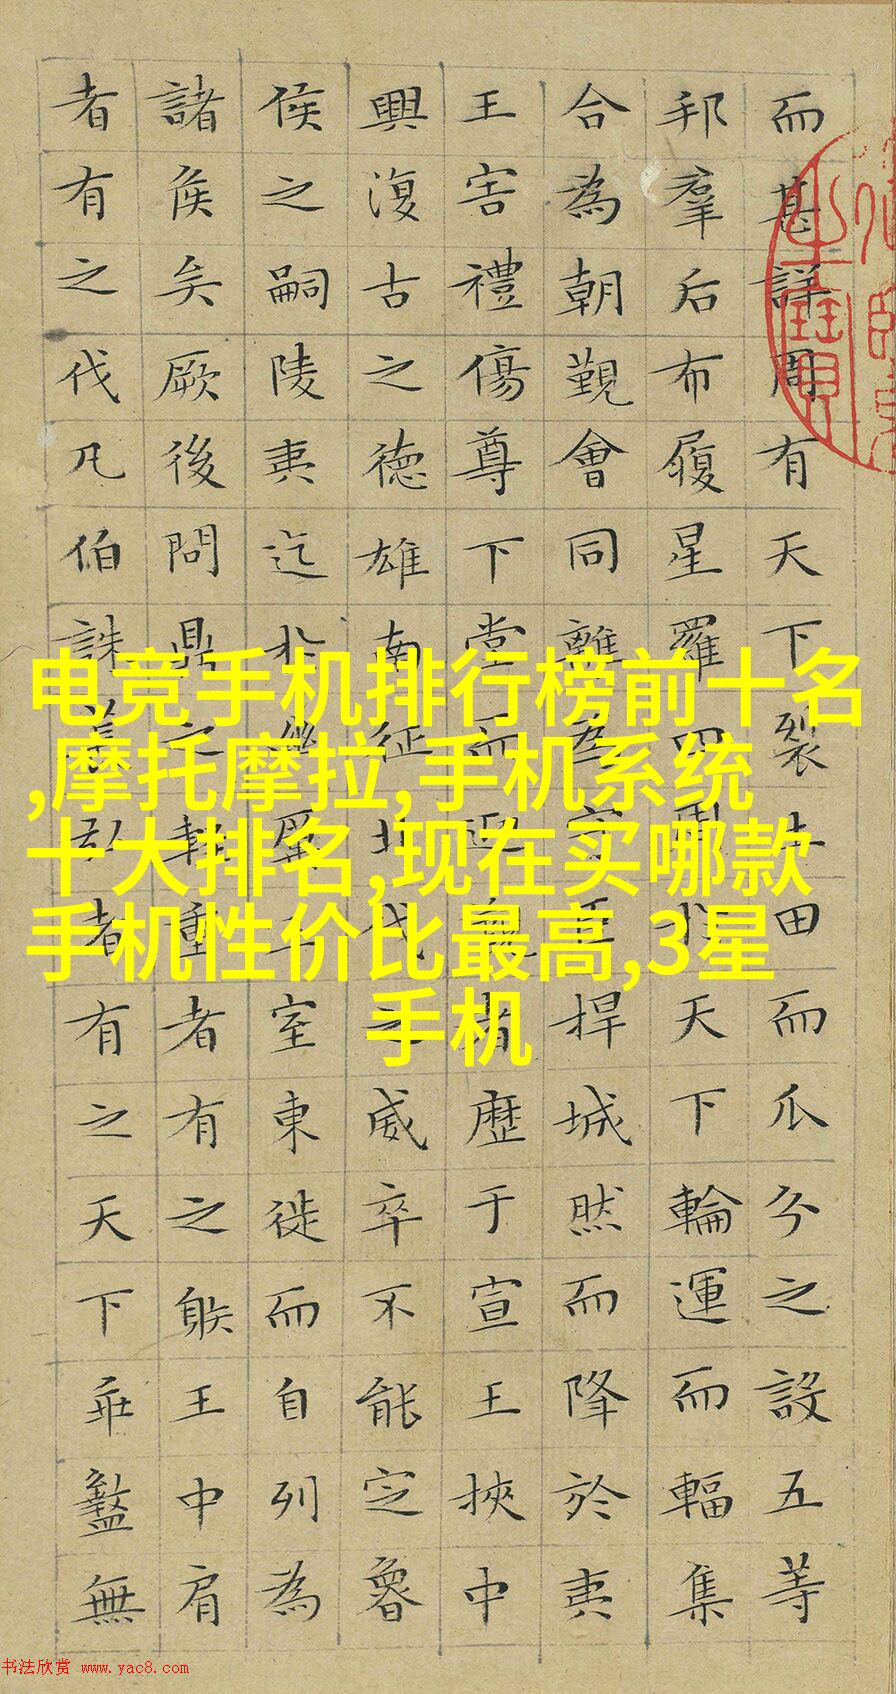 而甚詳周有天下裂土田而瓜分之設五等
邦羣后布履星羅四周扵天下輪運而輻集
合為朝覲會同離為守臣捍城然而降扵夷
王害禮傷尊下堂而迎覲者歷于宣王挾中
興復古之德雄南征北伐之威卒不能定魯
侯之嗣陵夷迄扵幽厲王室東徙而自列為
諸侯矣厥後問鼎之輕重者有之䠶王中肩
者有之伐凡伯誅萇弘者有之天下乖盭無
电竞手机排行榜前十名
,摩托摩拉,手机系统
十大排名,现在买哪款
手机性价比最高,3星
手机
书法欣赏 www.yac8.com